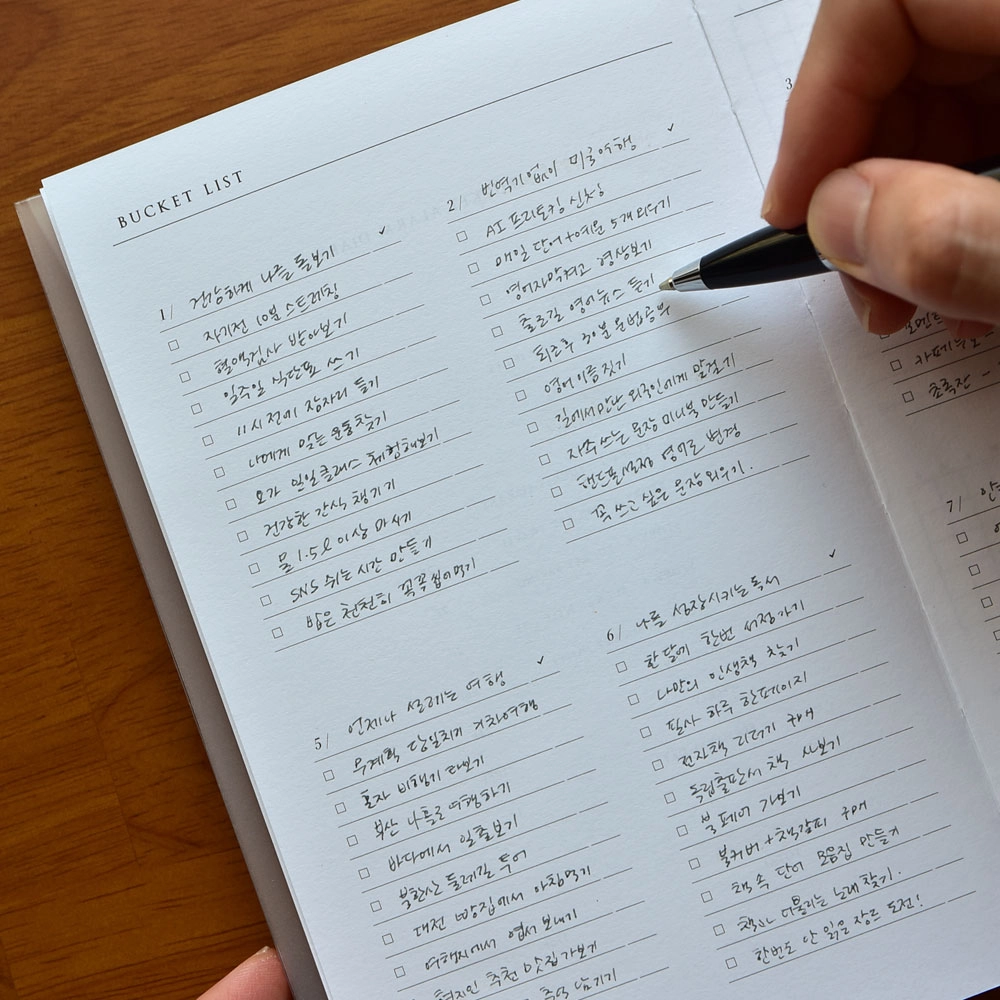 BUCKET LIST
1/ 건강하게 나를 돌보기
자기전 10분 스트레칭
혈액검사 받아보기
일주일 식단표 쓰기
11시 전에 잠자리 들기
나에게 맞는 운동찾기
요가 일일클래스 체험해보기
건강한 간식 챙기기
물 1.5l 이상 마시기
SNS 쉬는 시간 만들기
밥은 천천히 꼭꼭 씹어먹기
2/ 번역기없이 미국여행
AI 프리토킹 신청
매일 단어+예문 5개 외우기
영어자막켜고 영상보기
출근길 영어뉴스 듣기
퇴근후 30분 문법공부
영어이름 짓기
길에서만난 외국인에게 말걸기
자주쓰는 문장 미니북 만들기
핸드폰설정 영어로 변경
꼭 쓰고 싶은 문장 외우기.
5/ 언제나 설레는 여행
무계획 당일치기 기차여행
혼자 비행기 타보기
부산 나홀로여행하기
바다에서 일출보기
북한산 둘레길 투어
대전 빵집에서 아침먹기
여행지에서 엽서 보내기
현지인 추천 맛집가보기
추억 남기기
6/ 나를 성장시키는 독서
한 달에 한번 서점가기
나만의 인생책 찾기
필사 하루 한페이지
전자책 리더기 구매
독립출판서 책 사보기
북페어 가보기
북커버+책갈피 구매
책 속 단어 모음집 만들기
책이랑 어울리는 노래찾기.
한번도 안 읽은 장르 도전!
3
카페
초록잔 -
7/